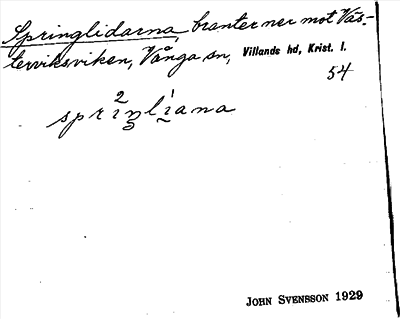 Springlidarna, branter ner mot Väs-
terviksviken, Vånga sn, Villands hd, Krist. l.
54
2 1
spriŋliana
JOHN SVENSSON 1929